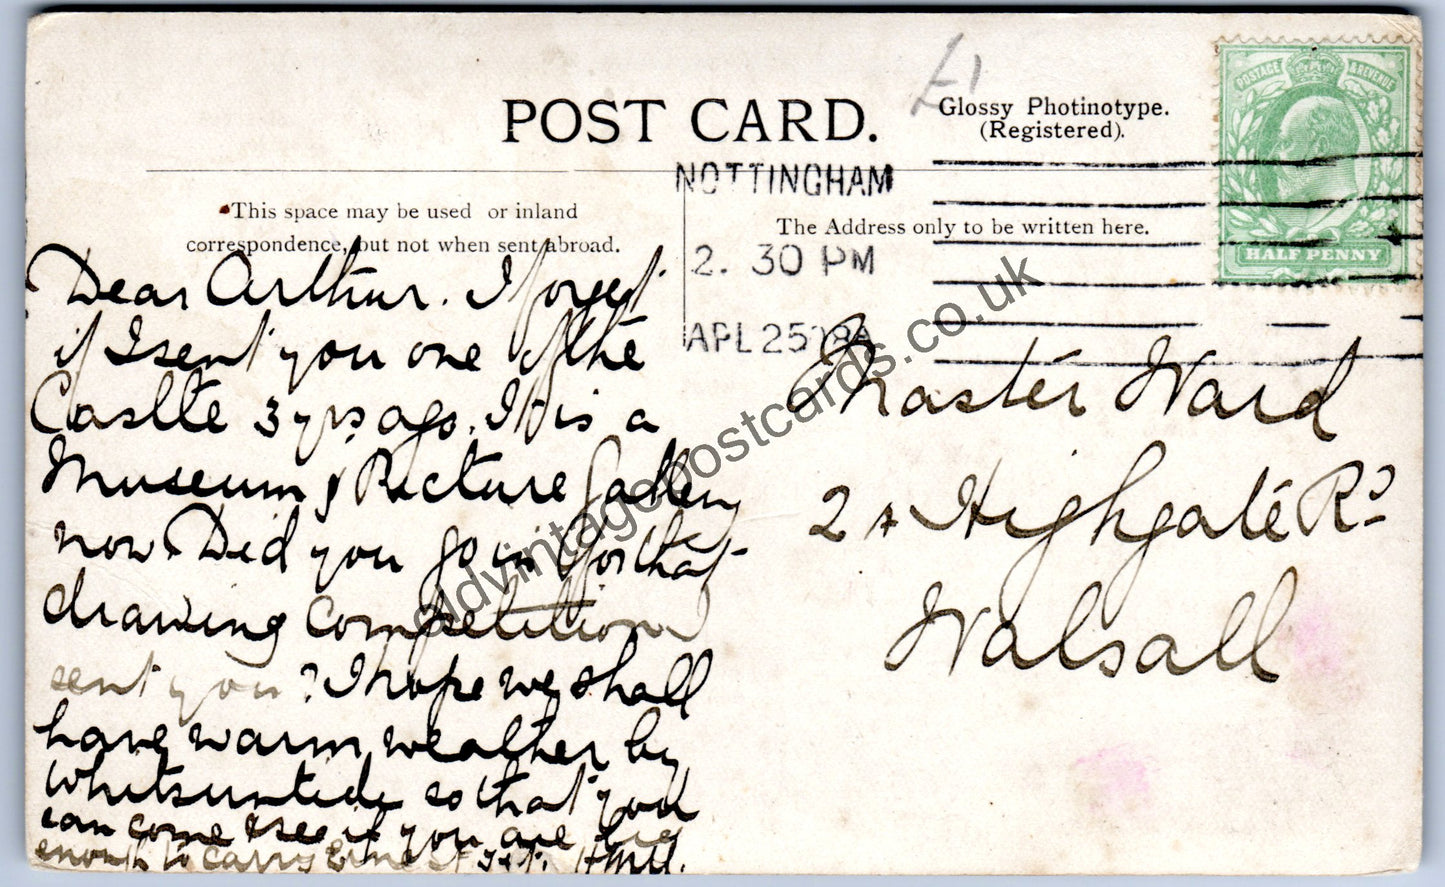 £1
POST CARD.
Glossy Photinotype.
(Registered).
POSTAGE & REVENUE
HALF PENNY
NOTTINGHAM
2. 30 PM
APL 25 08
This space may be used or inland
correspondence, but not when sent abroad.
The Address only to be written here.
Dear Arthur. I forget
if I sent you one of the
Castle 3 yrs ago. It is a
Museum & Picture Gallery
now. Did you go in for that
drawing Competition
sent you? I hope we shall
have warm weather by
Whitsuntide so that you
can come & see if you are big
enough to carry Ernest
Master Ward
Highgate Rd
Walsall
oldvintagepostcards.co.uk